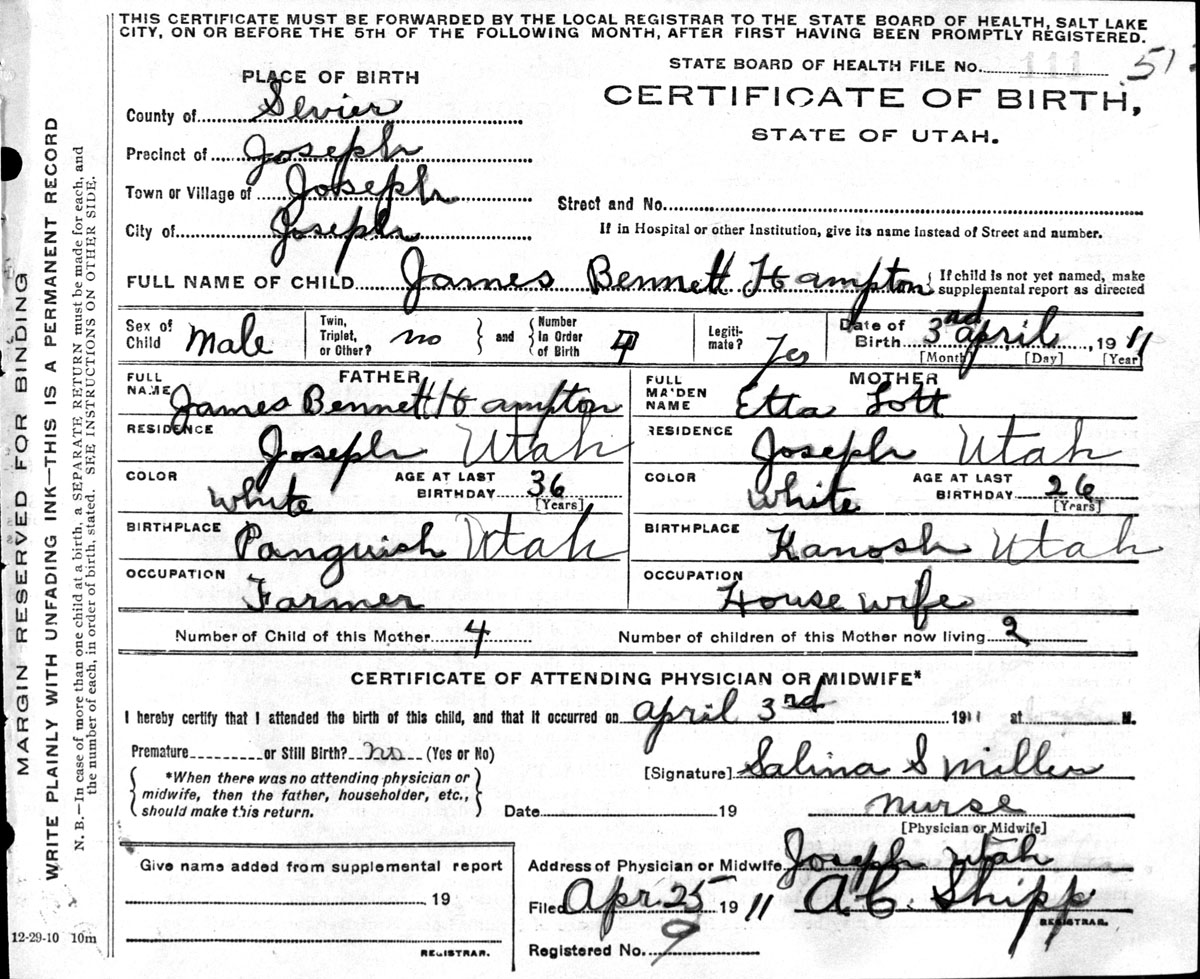 THIS CERTIFICATE MUST BE FORWARDED BY THE LOCAL REGISTRAR TO THE STATE BOARD OF HEALTH, SALT LAKE
CITY, ON OR BEFORE THE 5TH OF THE FOLLOWING MONTH, AFTER FIRST HAVING BEEN PROMPTLY REGISTERED.
MARGIN RESERVED FOR BINDING
WRITE PLAINLY WITH UNFADING INK—THIS IS A PERMANENT RECORD
N. B.—In case of more than one child at a birth, a SEPARATE RETURN must be made for each, and
the number of each, in order of birth, stated. SEE INSTRUCTIONS ON OTHER SIDE.
STATE BOARD OF HEALTH FILE No. 111 51
PLACE OF BIRTH
CERTIFICATE OF BIRTH,
STATE OF UTAH.
County of Sevier
Precinct of Joseph
Town or Village of Joseph
Street and No.
City of Joseph
If in Hospital or other Institution, give its name instead of Street and number.
FULL NAME OF CHILD James Bennett Hampton { If child is not yet named, make
supplemental report as directed
Sex of Child Male Twin, Triplet, or Other? no } and { Number In Order of Birth 4 Legitimate? Yes Date of Birth 3rd april, 1911
[Month] [Day] [Year]
FATHER MOTHER
FULL NAME James Bennett Hampton FULL MAIDEN NAME Etta Lott
RESIDENCE Joseph Utah RESIDENCE Joseph Utah
COLOR White AGE AT LAST BIRTHDAY 36 [Years] COLOR White AGE AT LAST BIRTHDAY 26 [Years]
BIRTHPLACE Panguish Utah BIRTHPLACE Kanosh Utah
OCCUPATION Farmer OCCUPATION House wife
Number of Child of this Mother 4 Number of children of this Mother now living 2
CERTIFICATE OF ATTENDING PHYSICIAN OR MIDWIFE*
I hereby certify that I attended the birth of this child, and that it occurred on april 3rd 1911 at M.
Premature or Still Birth? no (Yes or No)
*When there was no attending physician or
midwife, then the father, householder, etc.,
should make this return.
[Signature] Salina S Miller
Date 19 nurse
[Physician or Midwife]
Give name added from supplemental report
19
REGISTRAR.
Address of Physician or Midwife Joseph Utah
Filed Apr. 25 1911 A. C. Shipp
REGISTRAR.
Registered No. 9
12-29-10 10m